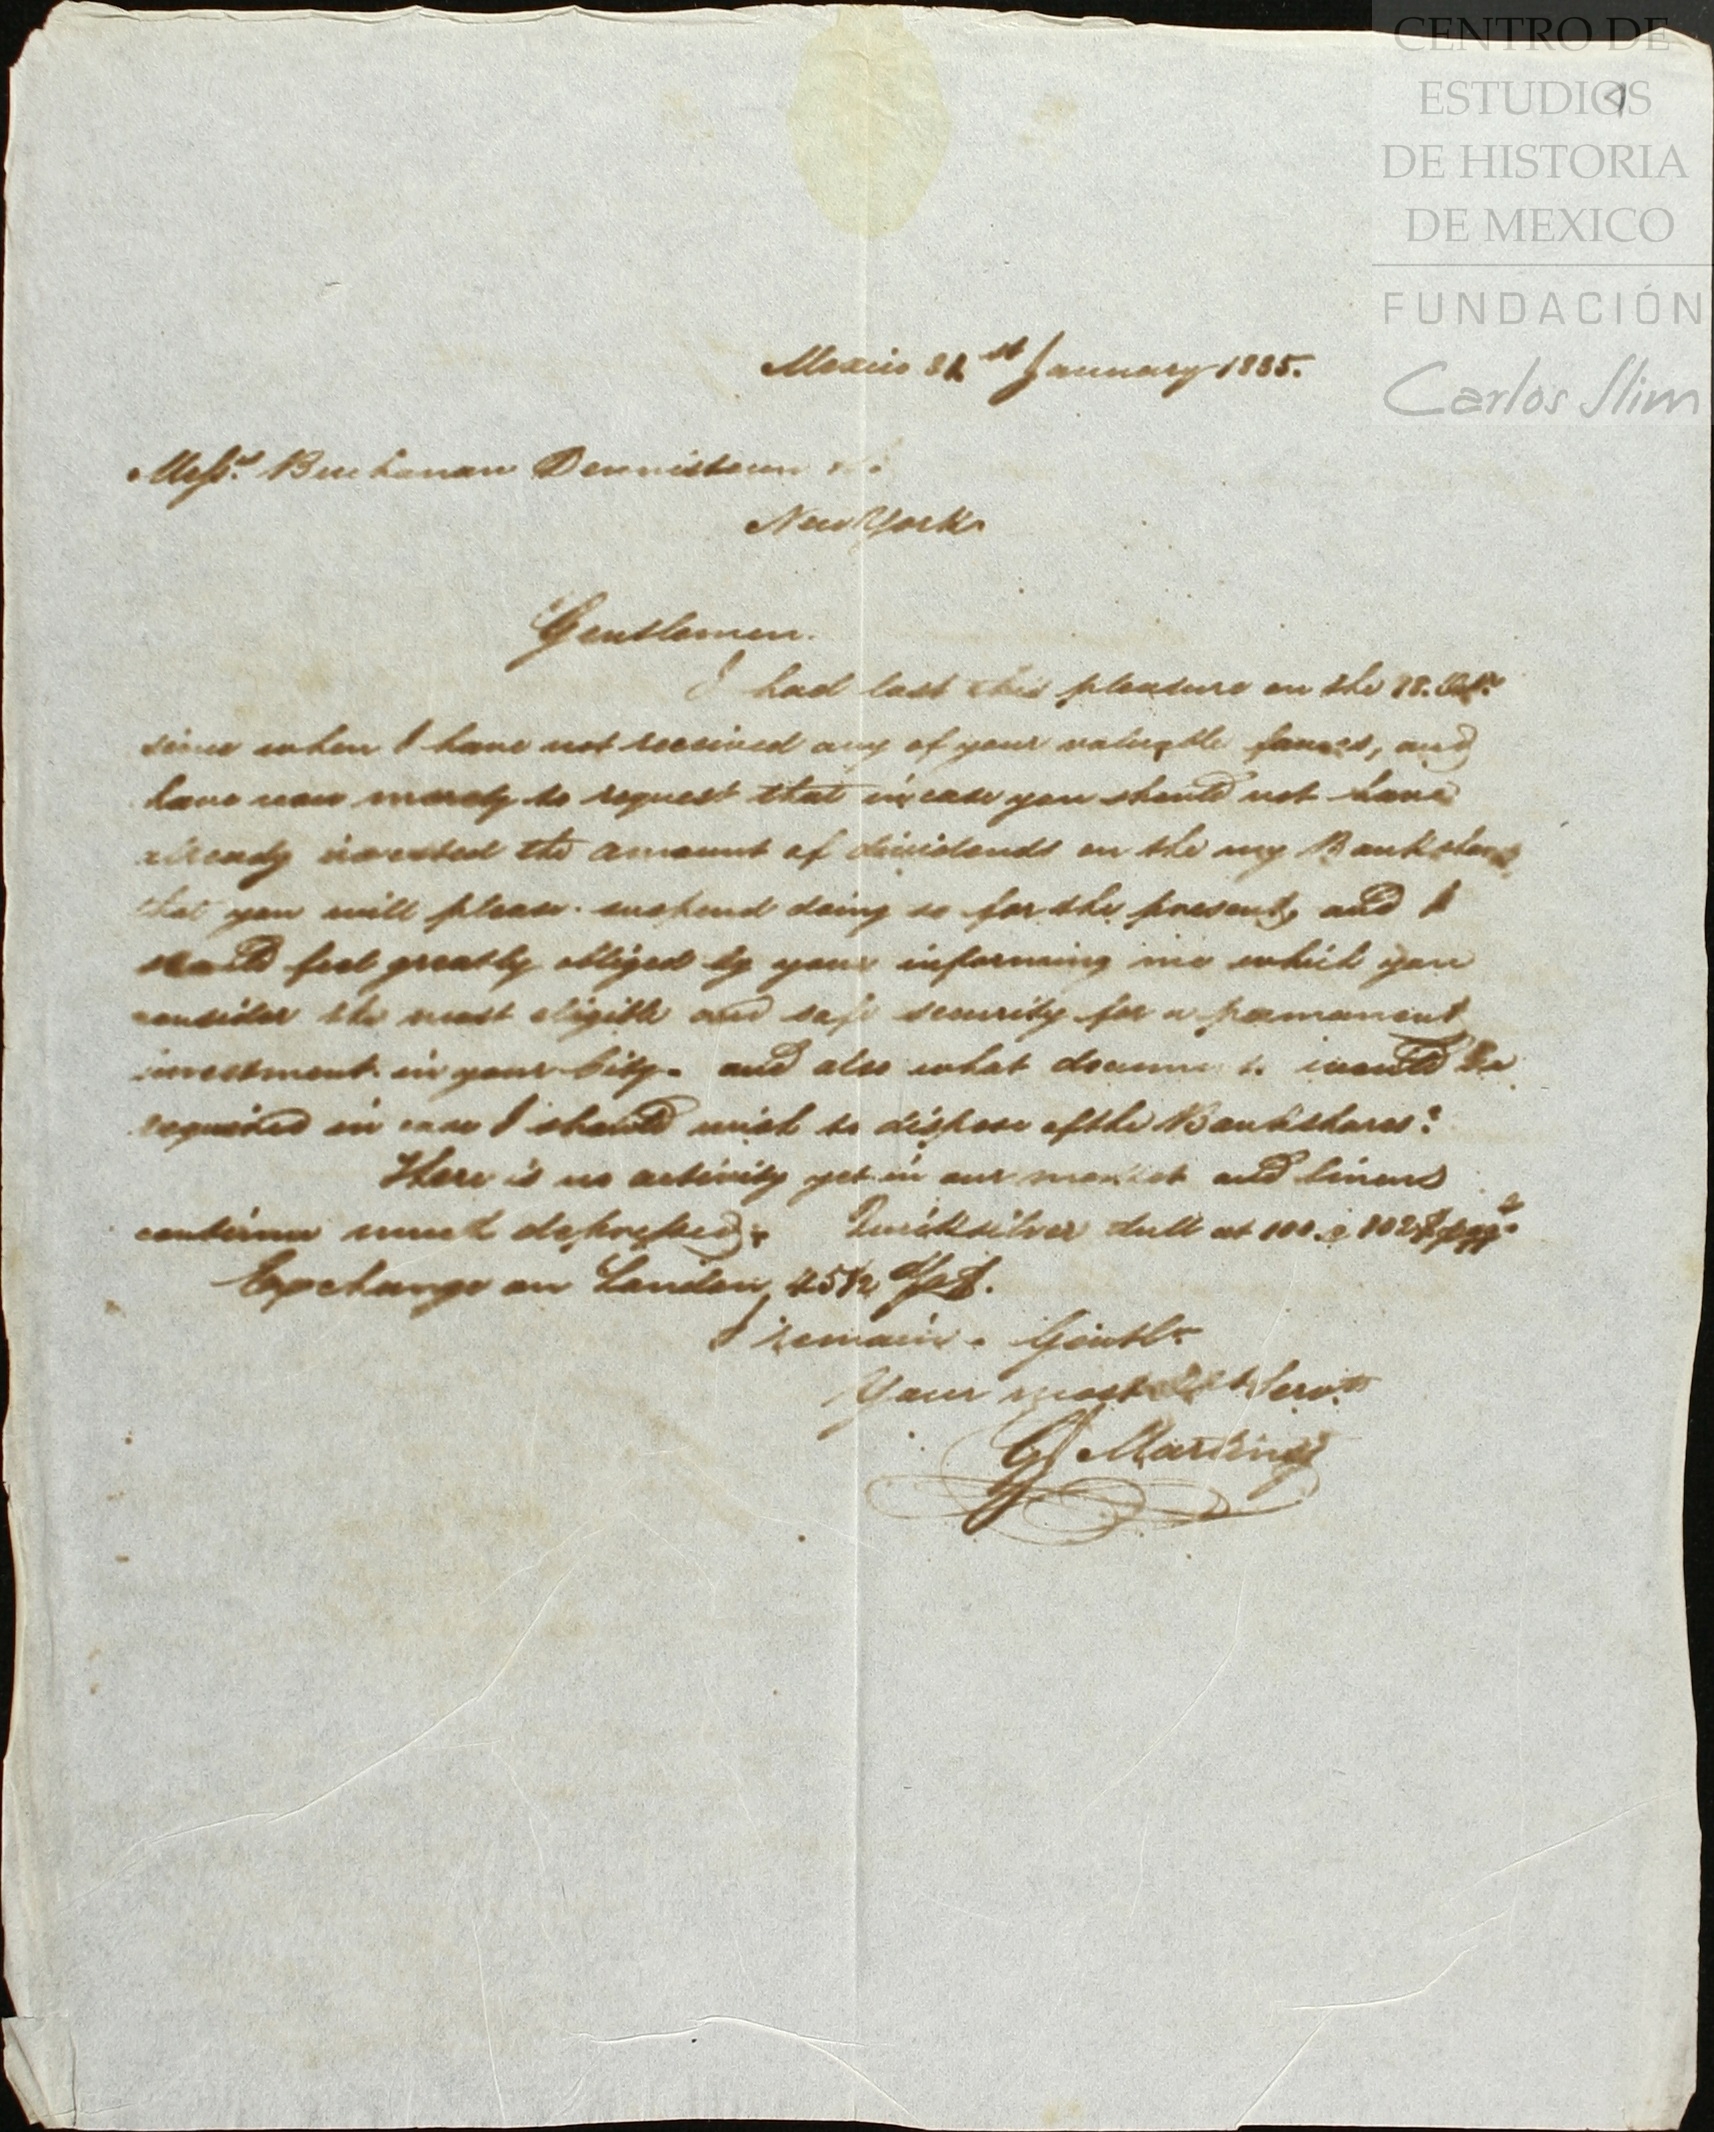 CENTRO DE
ESTUDIOS
DE HISTORIA
DE MEXICO
FUNDACIÓN
Carlos Slim
Mexico 31st January 1835.
Messrs. Buchanan Dennistoun
New York
Gentlemen.
I had last this pleasure on the
since when I have not received any of your valuable favors, and
have now merely to request that in case you should not have
already invested the amount of dividends on the my Bankshares
that you will please suspend doing so for the present, and I
should feel greatly obliged by your informing me which you
consider the most eligible and safe security for a permanent
investment in your City. and also what would be
required in case I should wish to dispose of the Bankshares?
There is no activity yet in our market and linens
continue much depressed. Quicksilver dull at 100 a 102
Exchange on London 45½ d/p$.
I remain. Gentln.
Your most Obt Servt.
G Martinz